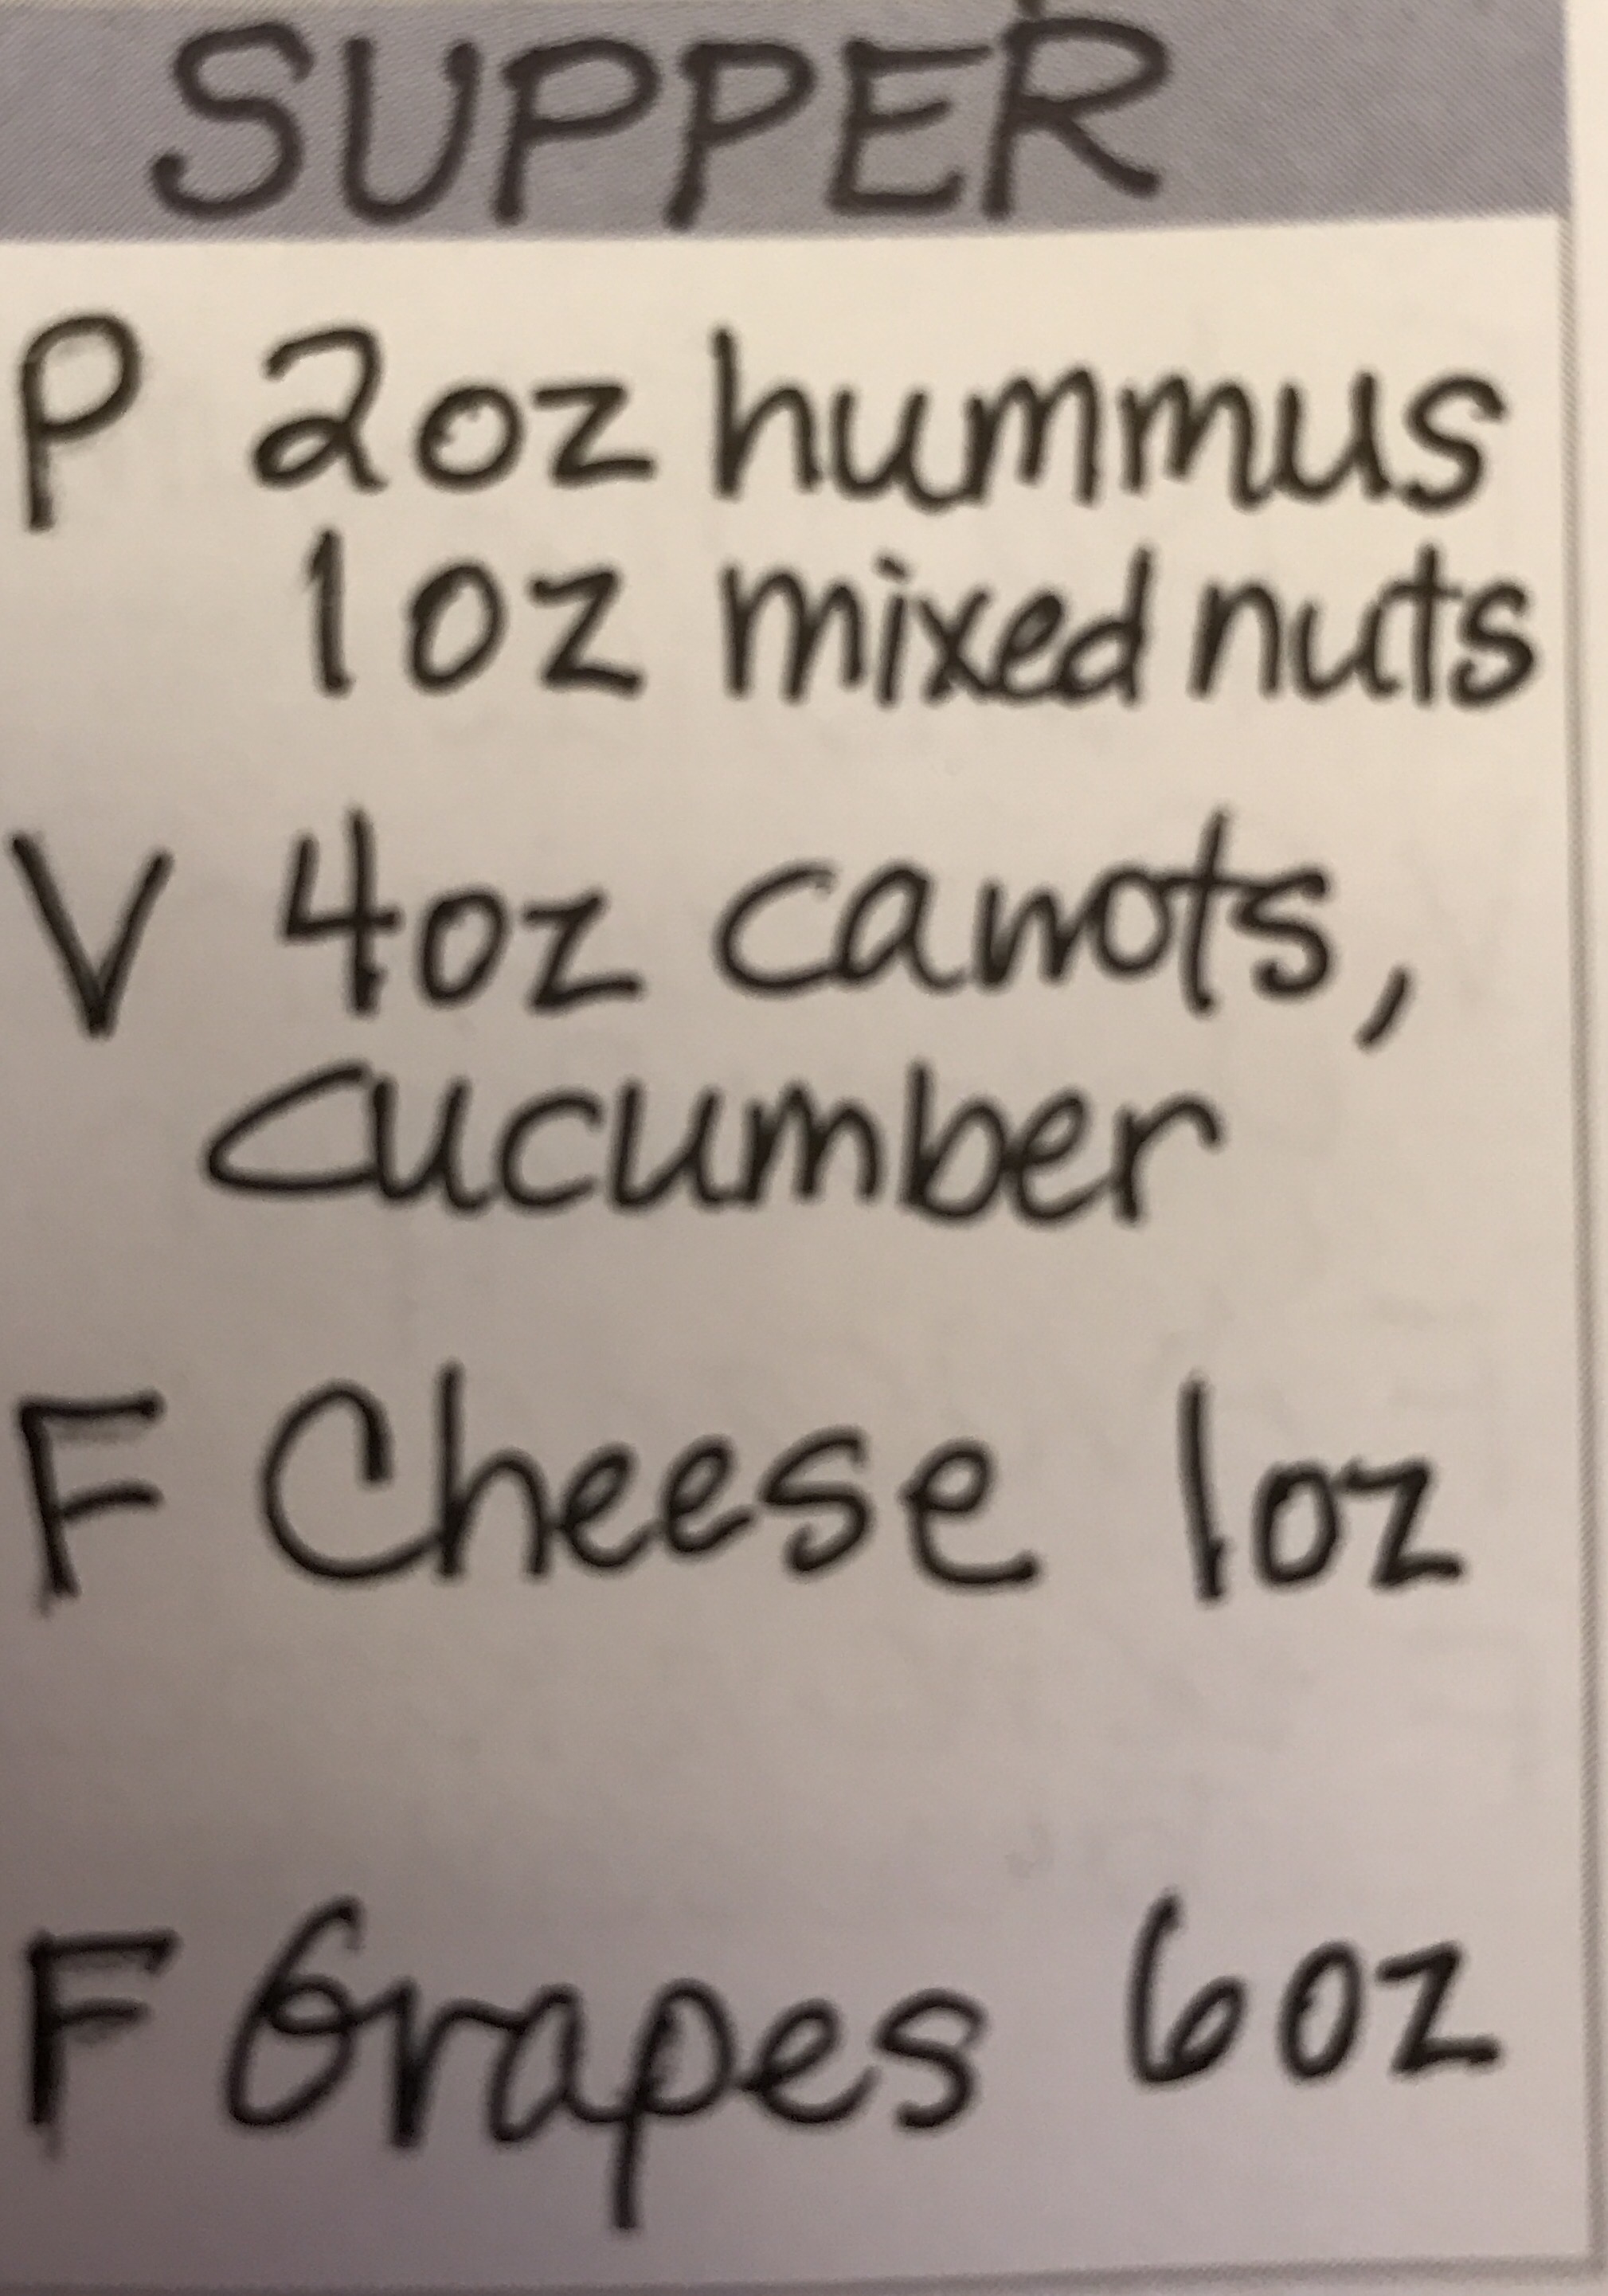 SUPPER
P 2oz hummus
1oz mixed nuts
V 4oz carrots,
cucumber
F Cheese 1oz
F Grapes 6oz